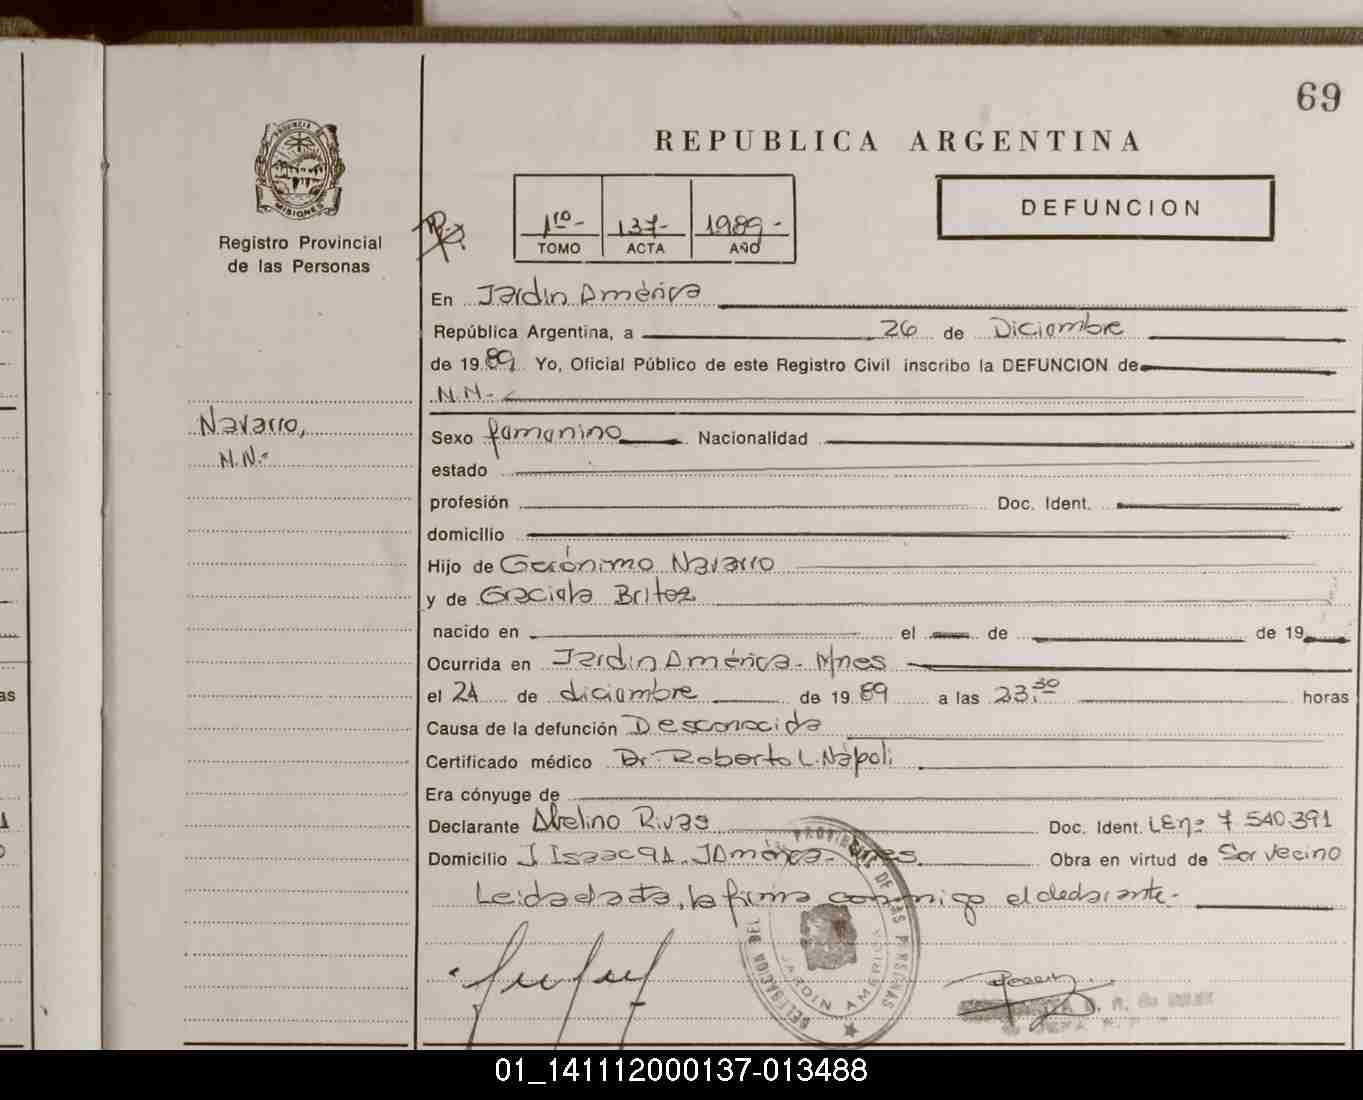 69
REPUBLICA ARGENTINA
PROVINCIA
MISIONES
Registro Provincial
de las Personas
1ro- 137- 1989-
TOMO ACTA AÑO
DEFUNCION
En Jardín América
República Argentina, a 26 de Diciembre
de 1989 Yo, Oficial Público de este Registro Civil inscribo la DEFUNCION de
N.N.-
Navarro,
N.N.-
Sexo femenino Nacionalidad
estado
profesión Doc. Ident.
domicilio
Hijo de Gerónimo Navarro
y de Graciela Britez
nacido en el de de 19
Ocurrida en Jardín América- Mnes
el 24 de diciembre de 1989 a las 23:30 horas
Causa de la defunción Desconocida
Certificado médico Dr. Roberto L. Nápoli
Era cónyuge de
Declarante Abelino Rivas Doc. Ident. LEnº 7.540.391
Domicilio J. Isaac 94. J América- Mnes. Obra en virtud de Ser vecino
Leida el acta, la firma conmigo el declarante-
DELEGACION DEL PROVINCIAL DE LAS PERSONAS
JARDIN AMERICA
as
01_141112000137-013488